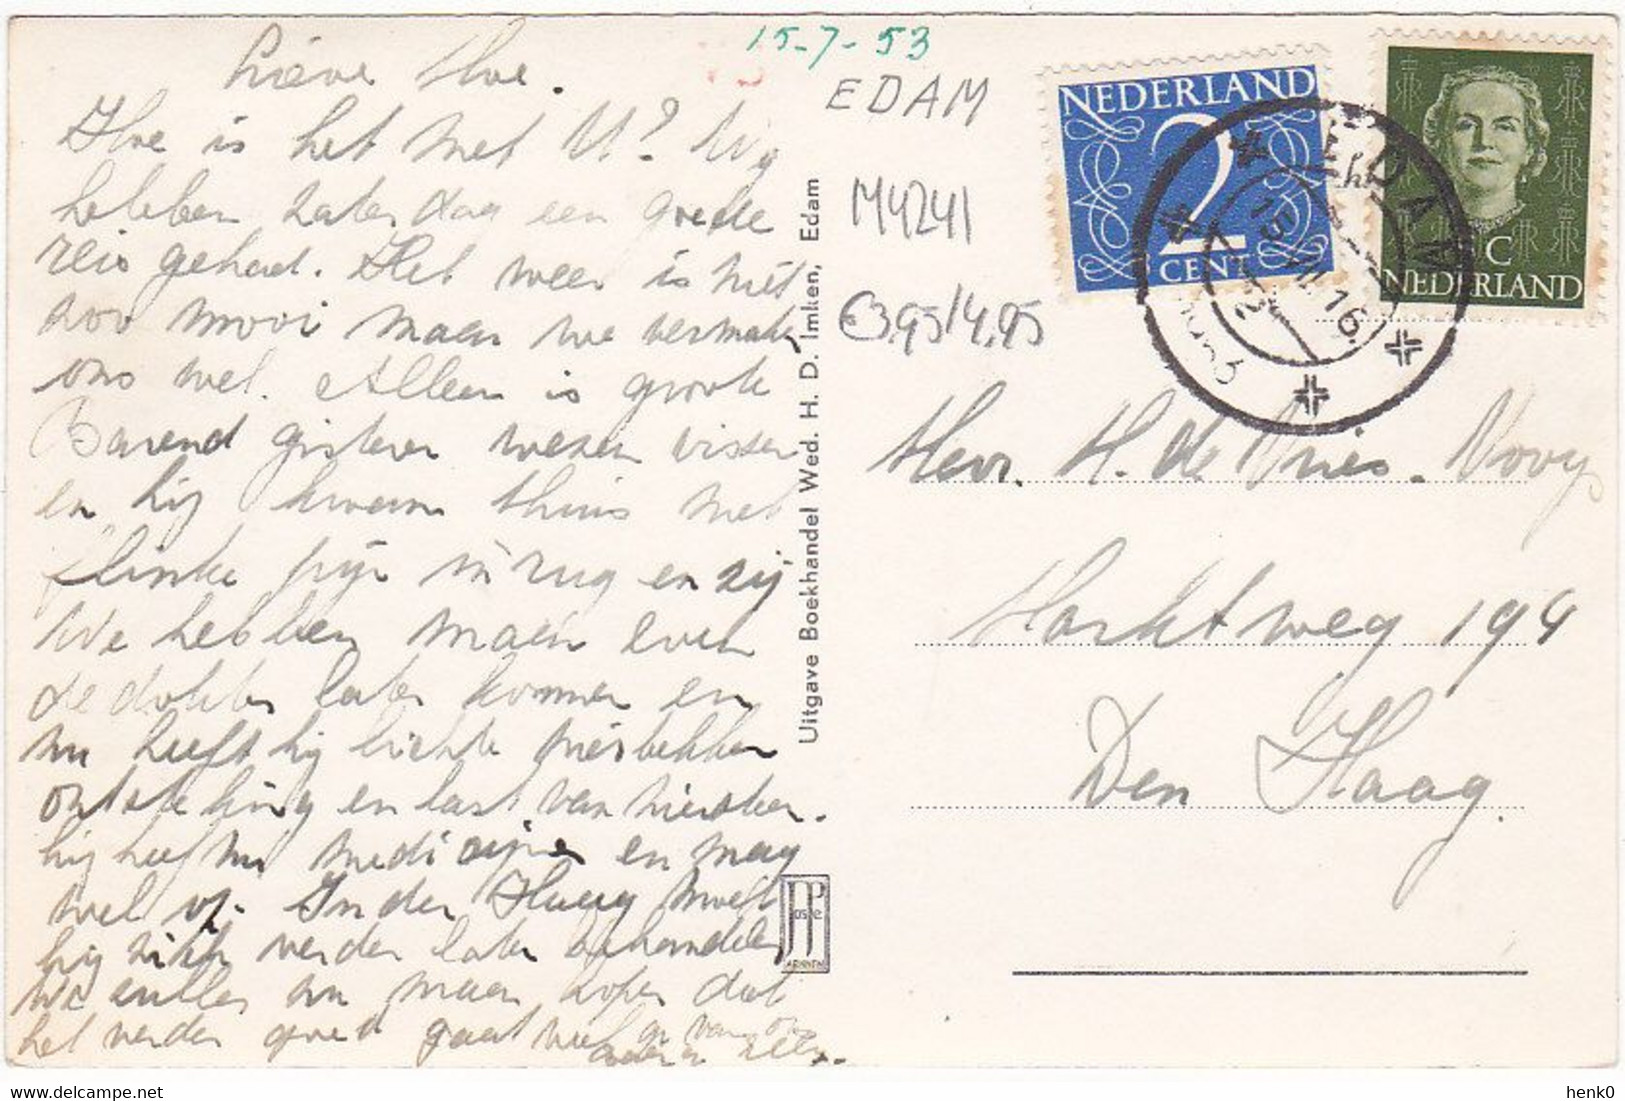 15-7-53
Lieve Moe.
Hoe is het met U? Wij
hebben zaterdag een goede
reis gehad. Het weer is niet
zoo mooi maar we vermaken
ons wel. Alleen is groote
Barend gisteren wezen vissen
en hij kwam thuis met
flinke pijn in rug en zij
We hebben maar even
de dokter laten komen en
nu heeft hij lichte nierbekken
ontsteking en last van niersteen.
hij heeft nu medicijnen en mag
wel op. In den Haag moet
hij zich verder laten behandelen
we zullen nu maar hopen dat
het verder goed gaat van ons
allen
EDAM
M4241
€3,95/4,95
Uitgave Boekhandel Wed. H. D. Imken, Edam
JP
NEDERLAND
2
CENT
EDAM
15 VII 16
C
NEDERLAND
Hevr. H. de Vries. Nooy
Marktweg 194
Den Haag.
henk0